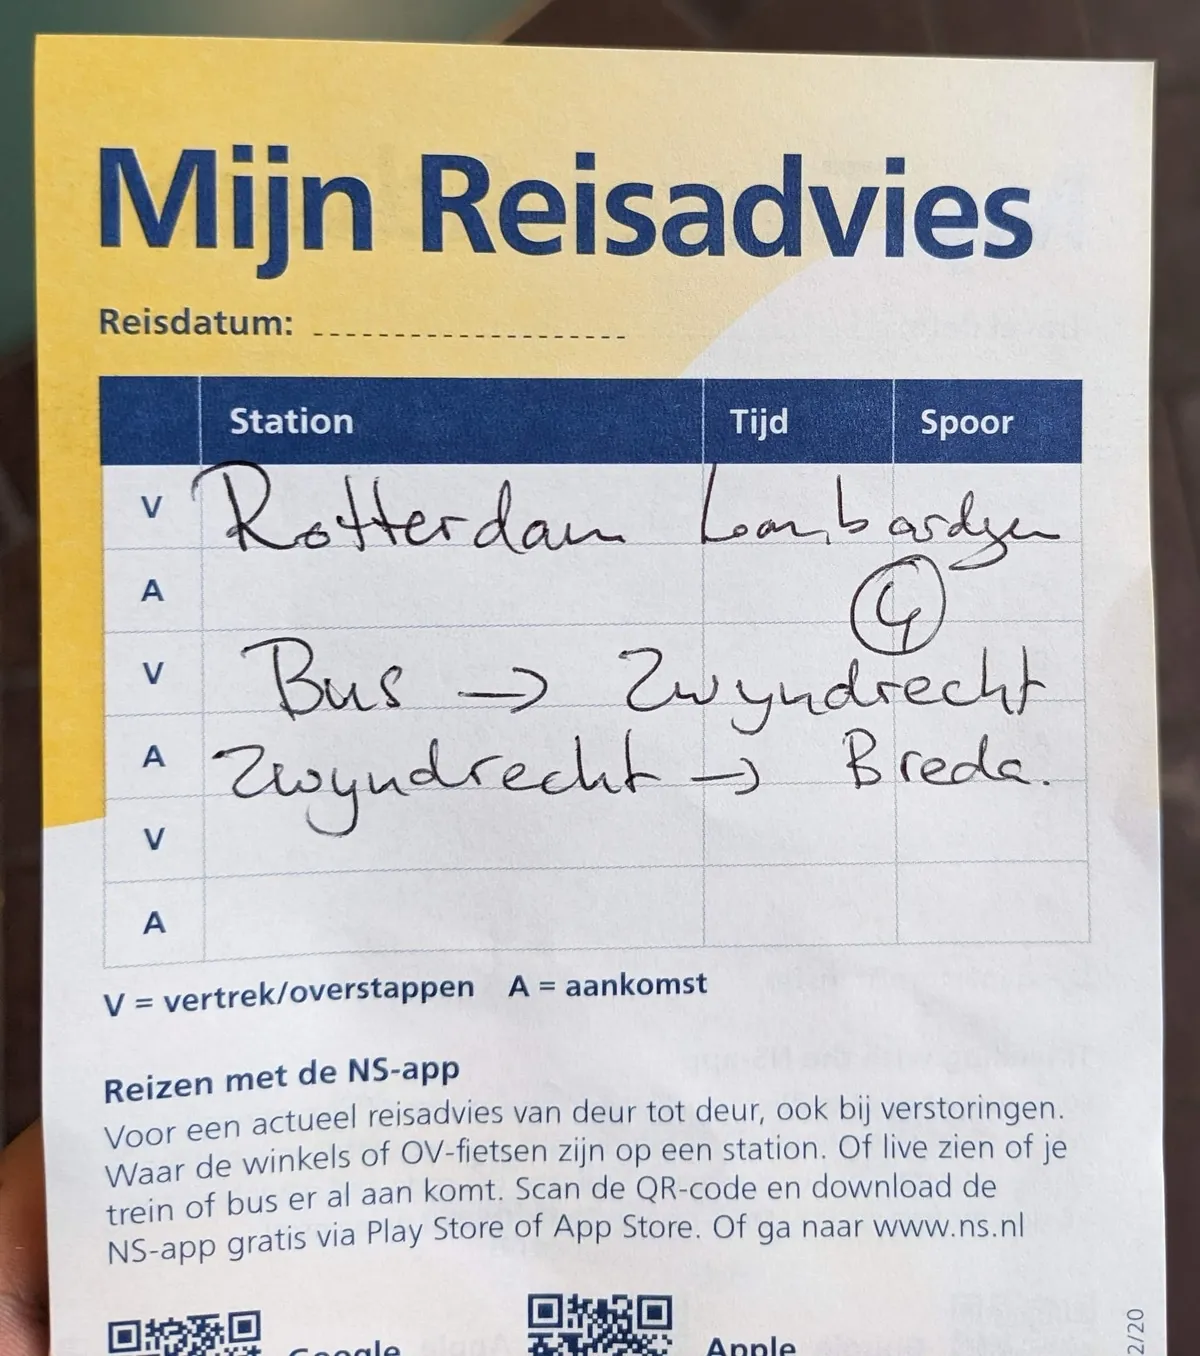 Mijn Reisadvies
Reisdatum:
Station Tijd Spoor
V Rotterdam Lombardyen
A 4
V Bus → Zwyndrecht
A Zwyndrecht → Breda.
V
A
V = vertrek/overstappen A = aankomst
Reizen met de NS-app
Voor een actueel reisadvies van deur tot deur, ook bij verstoringen.
Waar de winkels of OV-fietsen zijn op een station. Of live zien of je
trein of bus er al aan komt. Scan de QR-code en download de
NS-app gratis via Play Store of App Store. Of ga naar www.ns.nl
Google Apple
2/20